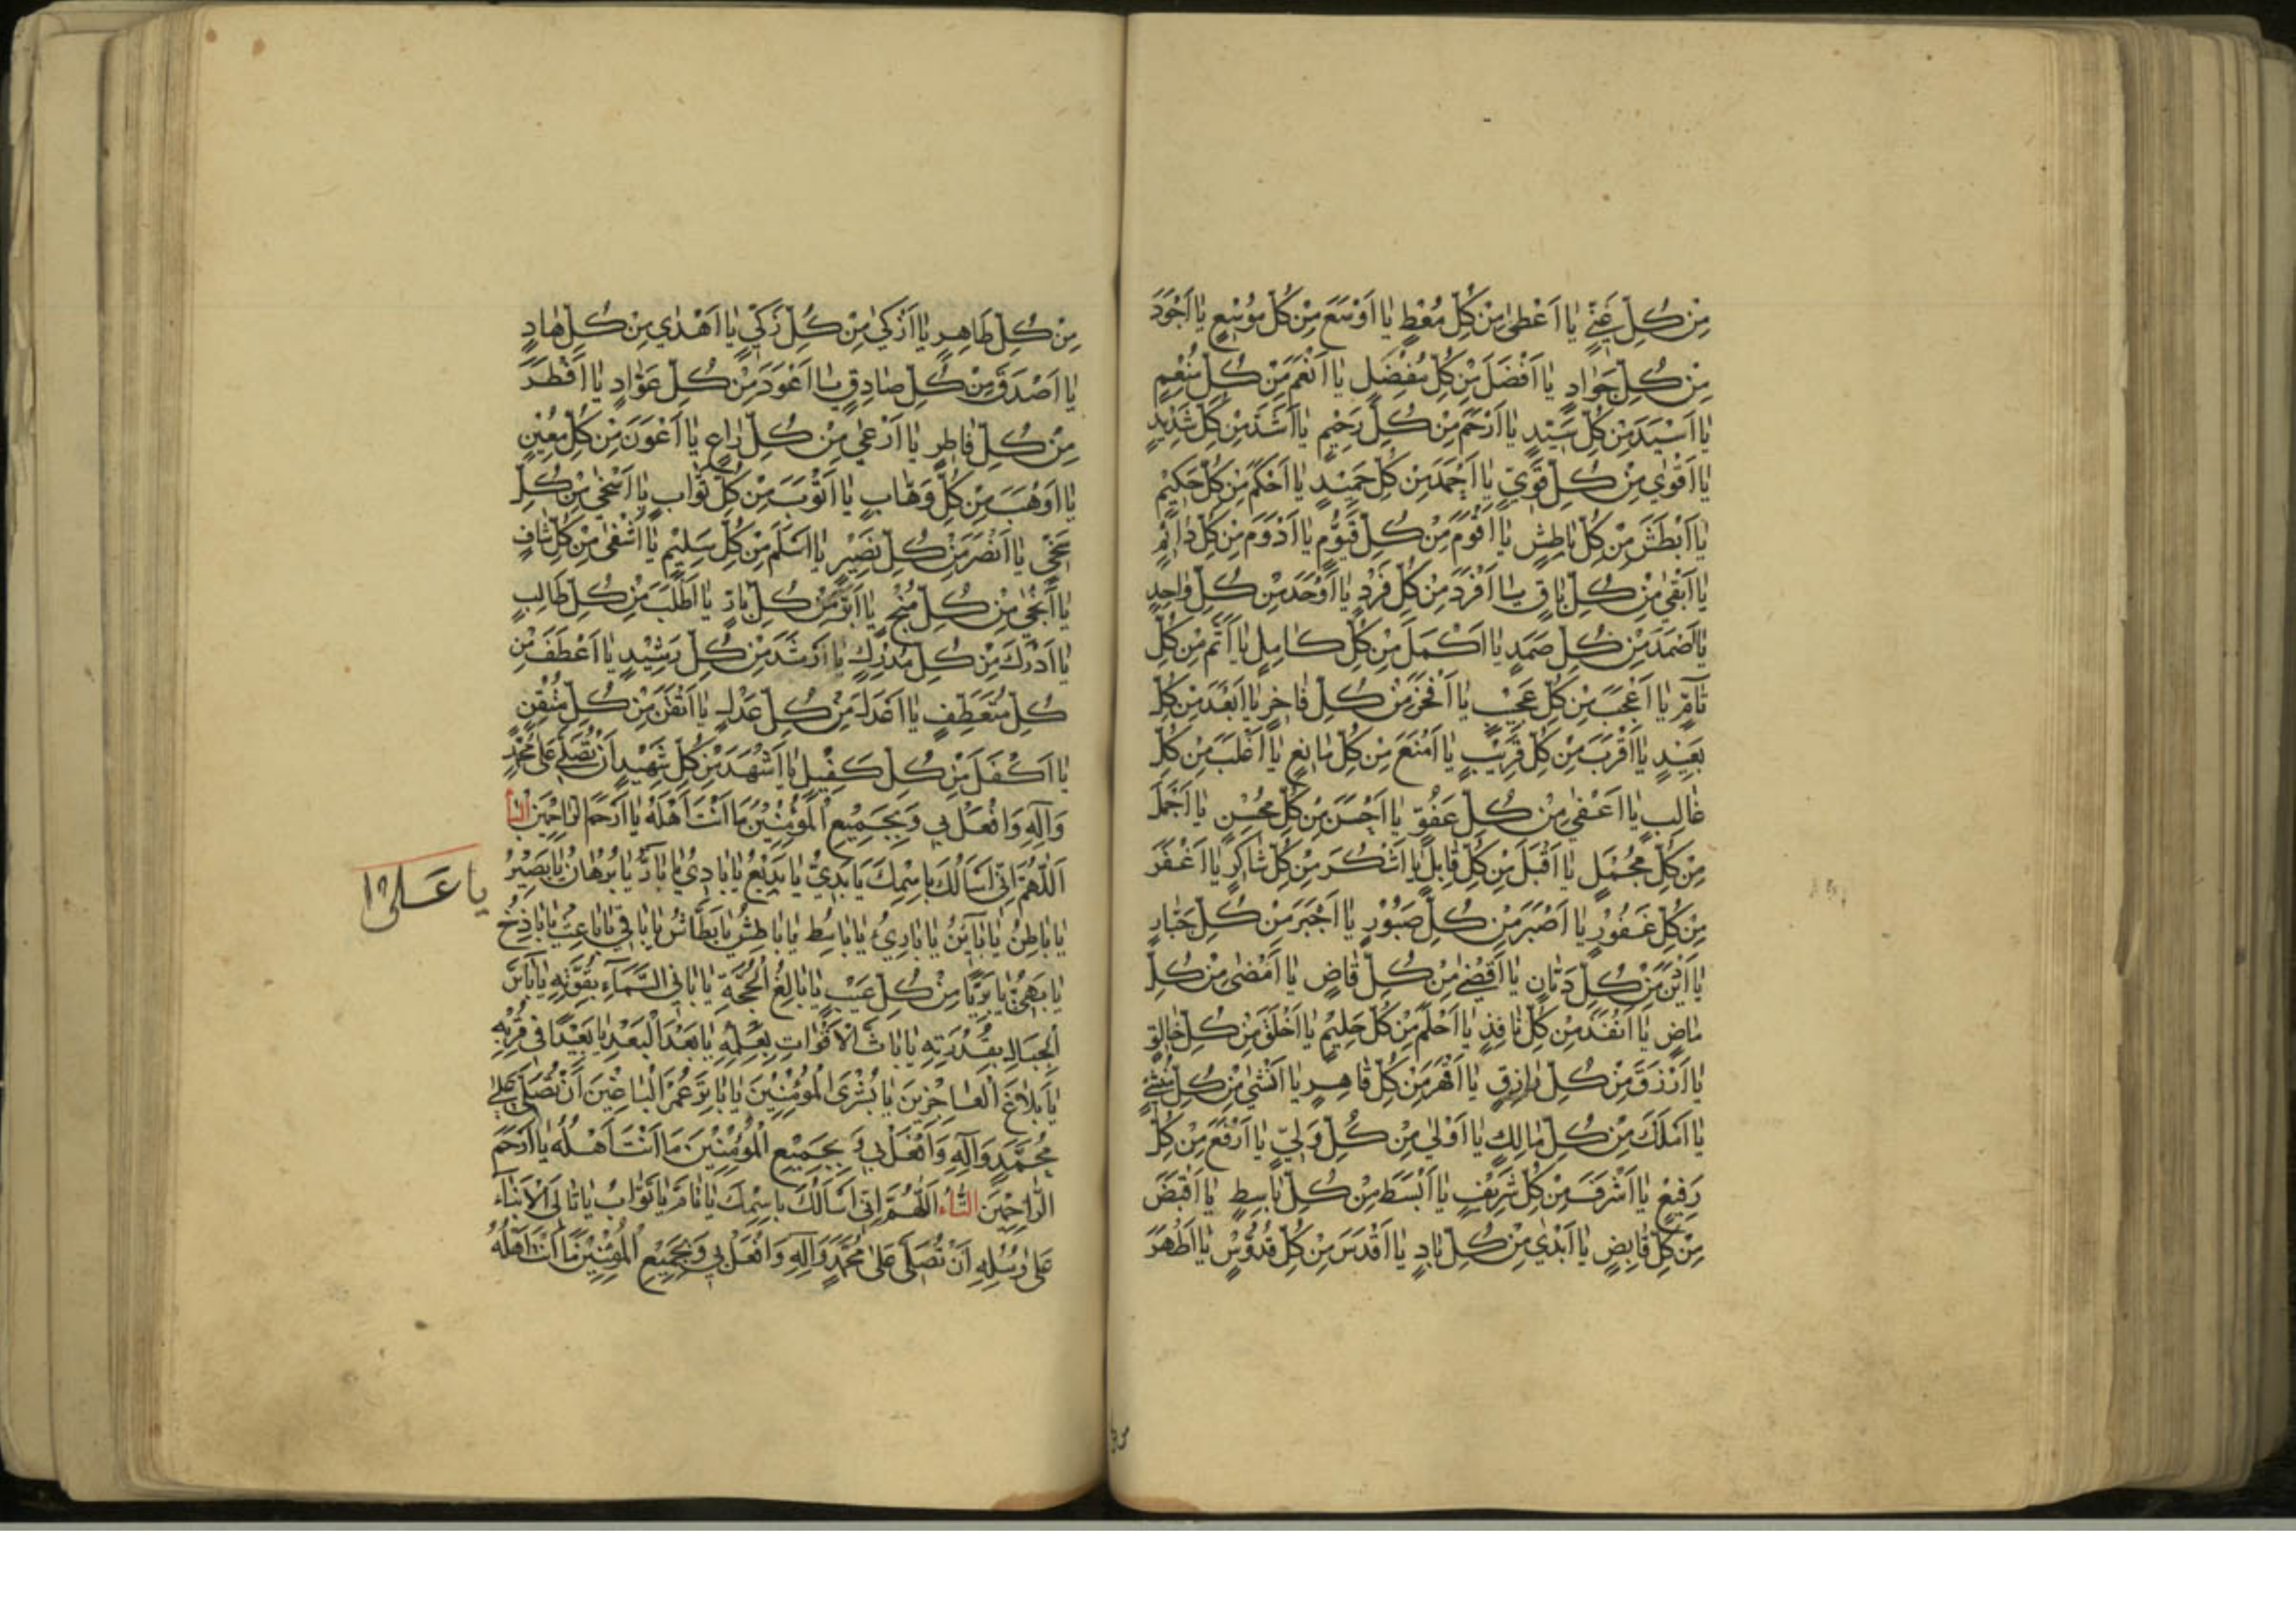 مِنْ كُلِّ غَنِيٍّ يٰا اَعْطىٰ مِنْ كُلِّ مُعْطٍ يٰا اَوْسَعَ مِنْ كُلِّ مُوْسِعٍ يٰا اَجْوَدَ
مِنْ كُلِّ جَوٰادٍ يٰا اَفْضَلَ مِنْ كُلِّ مُفْضِلٍ يٰا اَنْعَمَ مِنْ كُلِّ مُنْعِمٍ
يٰا اَسْيَدَ مِنْ كُلِّ سَيِّدٍ يٰا اَرْحَمَ مِنْ كُلِّ رَحِيْمٍ يٰا اَشَدَّ مِنْ كُلِّ شَدِيْدٍ
يٰا اَقْوٰي مِنْ كُلِّ قَوِيٍّ يٰا اَحْمَدَ مِنْ كُلِّ حَمِيْدٍ يٰا اَحْكَمَ مِنْ كُلِّ حَكِيْمٍ
يٰا اَبْطَشَ مِنْ كُلِّ بٰاطِشٍ يٰا اَقْوَمَ مِنْ كُلِّ قَيُّوْمٍ يٰا اَدْوَمَ مِنْ كُلِّ دٰائِمٍ
يٰا اَبْقىٰ مِنْ كُلِّ بٰاقٍ يٰا اَفْرَدَ مِنْ كُلِّ فَرْدٍ يٰا اَوْحَدَ مِنْ كُلِّ وٰاحِدٍ
يٰا اَصْمَدَ مِنْ كُلِّ صَمَدٍ يٰا اَكْمَلَ مِنْ كُلِّ كٰامِلٍ يٰا اَتَمَّ مِنْ كُلِّ
تٰآمٍّ يٰا اَعْجَبَ مِنْ كُلِّ عَجِيْبٍ يٰا اَفْخَرَ مِنْ كُلِّ فٰاخِرٍ يٰا اَبْعَدَ مِنْ كُلِّ
بَعِيْدٍ يٰا اَقْرَبَ مِنْ كُلِّ قَرِيْبٍ يٰا اَمْنَعَ مِنْ كُلِّ مٰانِعٍ يٰا اَغْلَبَ مِنْ كُلِّ
غٰالِبٍ يٰا اَعْفىٰ مِنْ كُلِّ عَفُوٍّ يٰا اَحْسَنَ مِنْ كُلِّ مُحْسِنٍ يٰا اَجْمَلَ
مِنْ كُلِّ مُجْمِلٍ يٰا اَقْبَلَ مِنْ كُلِّ قٰابِلٍ يٰا اَشْكَرَ مِنْ كُلِّ شٰاكِرٍ يٰا اَغْفَرَ
مِنْ كُلِّ غَفُوْرٍ يٰا اَصْبَرَ مِنْ كُلِّ صَبُوْرٍ يٰا اَجْبَرَ مِنْ كُلِّ جَبّٰارٍ
يٰا اَدْيَنَ مِنْ كُلِّ دَيّٰانٍ يٰا اَقْضىٰ مِنْ كُلِّ قٰاضٍ يٰا اَمْضىٰ مِنْ كُلِّ
مٰاضٍ يٰا اَنْفَذَ مِنْ كُلِّ نٰافِذٍ يٰا اَحْلَمَ مِنْ كُلِّ حَلِيْمٍ يٰا اَخْلَقَ مِنْ كُلِّ خٰالِقٍ
يٰا اَرْزَقَ مِنْ كُلِّ رٰازِقٍ يٰا اَقْهَرَ مِنْ كُلِّ قٰاهِرٍ يٰا اَنْشىٰ مِنْ كُلِّ مُنْشِئٍ
يٰا اَمْلَكَ مِنْ كُلِّ مٰالِكٍ يٰا اَوْلىٰ مِنْ كُلِّ وَلِيٍّ يٰا اَرْفَعَ مِنْ كُلِّ
رَفِيْعٍ يٰا اَشْرَفَ مِنْ كُلِّ شَرِيْفٍ يٰا اَبْسَطَ مِنْ كُلِّ بٰاسِطٍ يٰا اَقْبَضَ
مِنْ كُلِّ قٰابِضٍ يٰا اَبْدٰي مِنْ كُلِّ بٰادٍ يٰا اَقْدَسَ مِنْ كُلِّ قُدُّوْسٍ يٰا اَطْهَرَ
مِنْ كُلِّ طَاهِرٍ يٰا اَزْكىٰ مِنْ كُلِّ زَكِيٍّ يٰا اَهْدٰي مِنْ كُلِّ هٰادٍ
يٰا اَصْدَقَ مِنْ كُلِّ صٰادِقٍ يٰا اَعْوَدَ مِنْ كُلِّ عَوّٰادٍ يٰا اَفْطَرَ
مِنْ كُلِّ فٰاطِرٍ يٰا اَرْعىٰ مِنْ كُلِّ رٰاعٍ يٰا اَعْوَنَ مِنْ كُلِّ مُعِيْنٍ
يٰا اَوْهَبَ مِنْ كُلِّ وَهّٰابٍ يٰا اَتْوَبَ مِنْ كُلِّ تَوّٰابٍ يٰا اَسْخىٰ مِنْ كُلِّ
سَخِيٍّ يٰا اَنْصَرَ مِنْ كُلِّ نَصِيْرٍ يٰا اَسْلَمَ مِنْ كُلِّ سَلِيْمٍ يٰا اَشْفىٰ مِنْ كُلِّ شٰافٍ
يٰا اَنْجىٰ مِنْ كُلِّ مُنْجٍ يٰا اَبَرَّ مِنْ كُلِّ بٰارٍّ يٰا اَطْلَبَ مِنْ كُلِّ طٰالِبٍ
يٰا اَدْرَكَ مِنْ كُلِّ مُدْرِكٍ يٰا اَرْشَدَ مِنْ كُلِّ رَشِيْدٍ يٰا اَعْطَفَ مِنْ
كُلِّ مُتَعَطِّفٍ يٰا اَعْدَلَ مِنْ كُلِّ عَدْلٍ يٰا اَتْقَنَ مِنْ كُلِّ مُتْقِنٍ
يٰا اَكْفَلَ مِنْ كُلِّ كَفِيْلٍ يٰا اَشْهَدَ مِنْ كُلِّ شَهِيْدٍ اَنْ تُصَلِّيَ عَلىٰ مُحَمَّدٍ
وَآلِهِ وَافْعَلْ بِي وَبِجَمِيْعِ الْمُؤْمِنِيْنَ مٰا اَنْتَ اَهْلُهُ يٰا اَرْحَمَ الرّٰاحِمِيْنَ
اَللّٰهُمَّ اِنِّي اَسْأَلُكَ بِاسْمِكَ يٰا بَدِيُّ يٰا بَدِيْعُ يٰا بٰادِيُ يٰا بٰارُّ يٰا بُرْهٰانُ يٰا بَصِيْرُ
يا على
يٰا بٰاطِنُ يٰا بٰآئِنُ يٰا بٰارِيُ يٰا بٰاسِطُ يٰا بٰاطِشُ يٰا بَطّٰاشُ يٰا بٰاقِي يٰا بٰاعِثُ يٰا بٰاذِخُ
يٰا بَهِيُّ يٰا بَرِيًّا مِنْ كُلِّ عَيْبٍ يٰا بٰالِغَ الْحُجَّةِ يٰا بٰانِيَ السَّمَآءِ بِقُوَّتِهِ يٰا بٰآسَّ
الْجِبٰالِ بِقُدْرَتِهِ يٰا بٰاثَّ الْاَقْوٰاتِ بِعِلْمِهِ يٰا بَعْدَ الْبَعْدِ يٰا بَعِيْدًا فِي قُرْبِهِ
يٰا بَلٰاغَ الْعٰاجِزِيْنَ يٰا بُشْرَى الْمُؤْمِنِيْنَ يٰا بٰاتِرَ عُمْرِ الْبٰاغِيْنَ اَنْ تُصَلِّيَ عَلىٰ
مُحَمَّدٍ وَآلِهِ وَافْعَلْ بِي وَ بِجَمِيْعِ الْمُؤْمِنِيْنَ مٰا اَنْتَ اَهْلُهُ يٰا اَرْحَمَ
الرّٰاحِمِيْنَ التّٰاءُ اَللّٰهُمَّ اِنِّي اَسْأَلُكَ بِاسْمِكَ يٰا تٰامُّ يٰا تَوّٰابُ يٰا تٰالِيَ الْاَنْبٰاءِ
عَلىٰ رُسُلِهِ اَنْ تُصَلِّيَ عَلىٰ مُحَمَّدٍ وَآلِهِ وَافْعَلْ بِي وَبِجَمِيْعِ الْمُؤْمِنِيْنَ مٰا اَنْتَ اَهْلُهُ